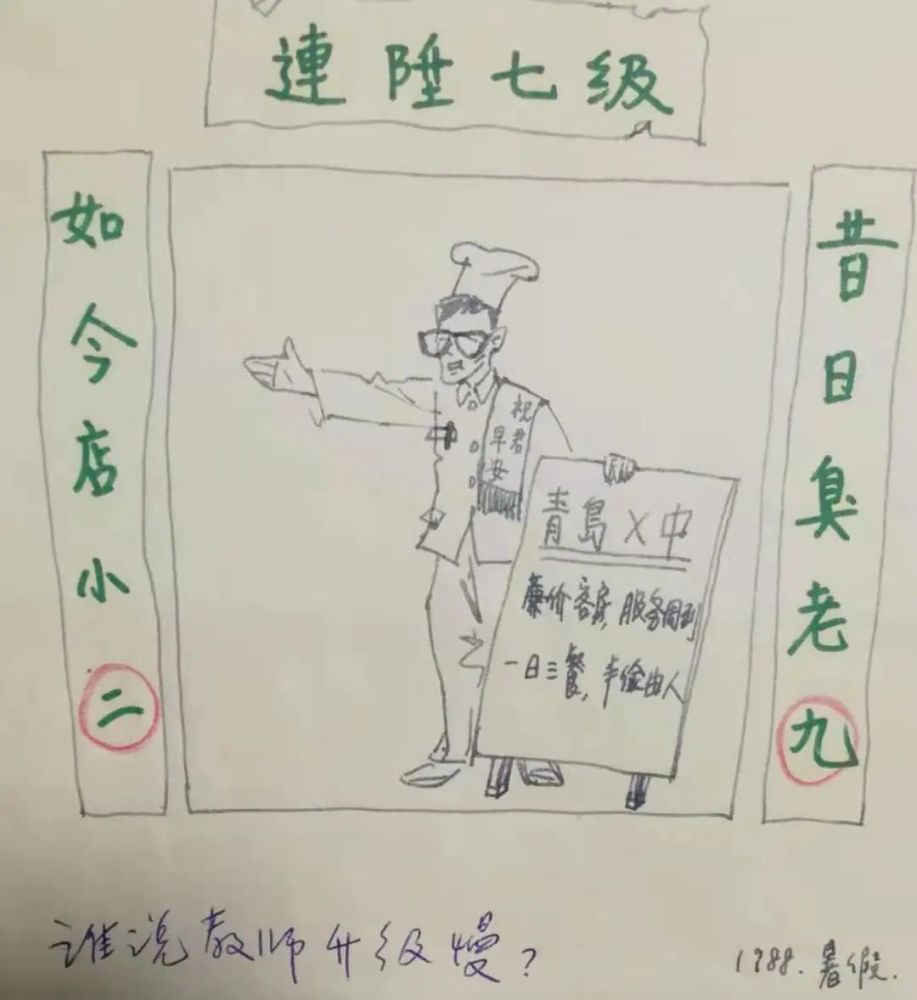 連陞七级
昔日臭老九
如今店小二
祝君
早安
青島X中
廉价客房，服务周到
一日三餐，丰俭由人
谁说教师升级慢？
1988.暑假.